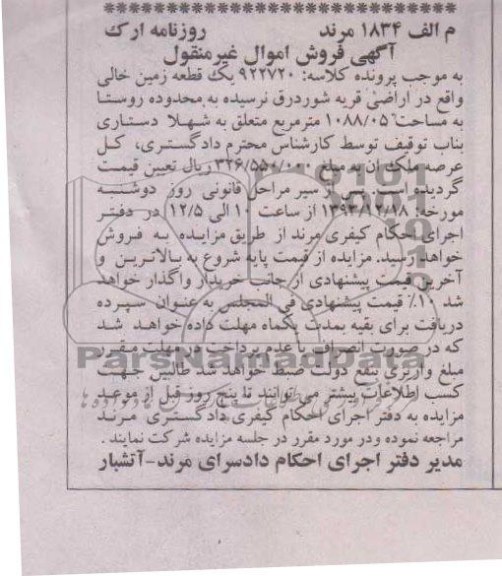 م الف ۱۸۳۴ مرند روزنامه ارک
آگهی فروش اموال غیرمنقول
به موجب پرونده کلاسه: ۹۲۲۷۲۰ یک قطعه زمین خالی
واقع در اراضی قریه شوردرق نرسیده به محدوده روستا
به مساحت ۱۰۸۸/۰۵ مترمربع متعلق به شهلا دستاری
بناب توقیف توسط کارشناس محترم دادگستری، کل
عرصه ملک ان به مبلغ ۳۲۶/۵۵۰/۰۰۰ ریال تعیین قیمت
گردیده است. پس از سیر مراحل قانونی روز دوشنبه
مورخه: ۱۳۹۳/۱۲/۱۸ از ساعت ۱۰ الی ۱۲/۵ در دفتر
اجرای احکام کیفری مرند از طریق مزایده به فروش
خواهد رسید. مزایده از قیمت پایه شروع به بالاترین و
آخرین قیمت پیشنهادی از جانب خریدار واگذار خواهد
شد ۱۰٪ قیمت پیشنهادی فی المجلس به عنوان سپرده
دریافت برای بقیه بمدت یکماه مهلت داده خواهد شد
که در صورت انصراف یا عدم پرداخت در مهلت مقرر
مبلغ واریزی بنفع دولت ضبط خواهد شد طالبین جهت
کسب اطلاعات بیشتر می توانند تا پنج روز قبل از موعد
مزایده به دفتر اجرای احکام کیفری دادگستری مرند
مراجعه نموده ودر مورد مقرر در جلسه مزایده شرکت نمایند .
مدیر دفتر اجرای احکام دادسرای مرند-آتشبار
ParsNamadData